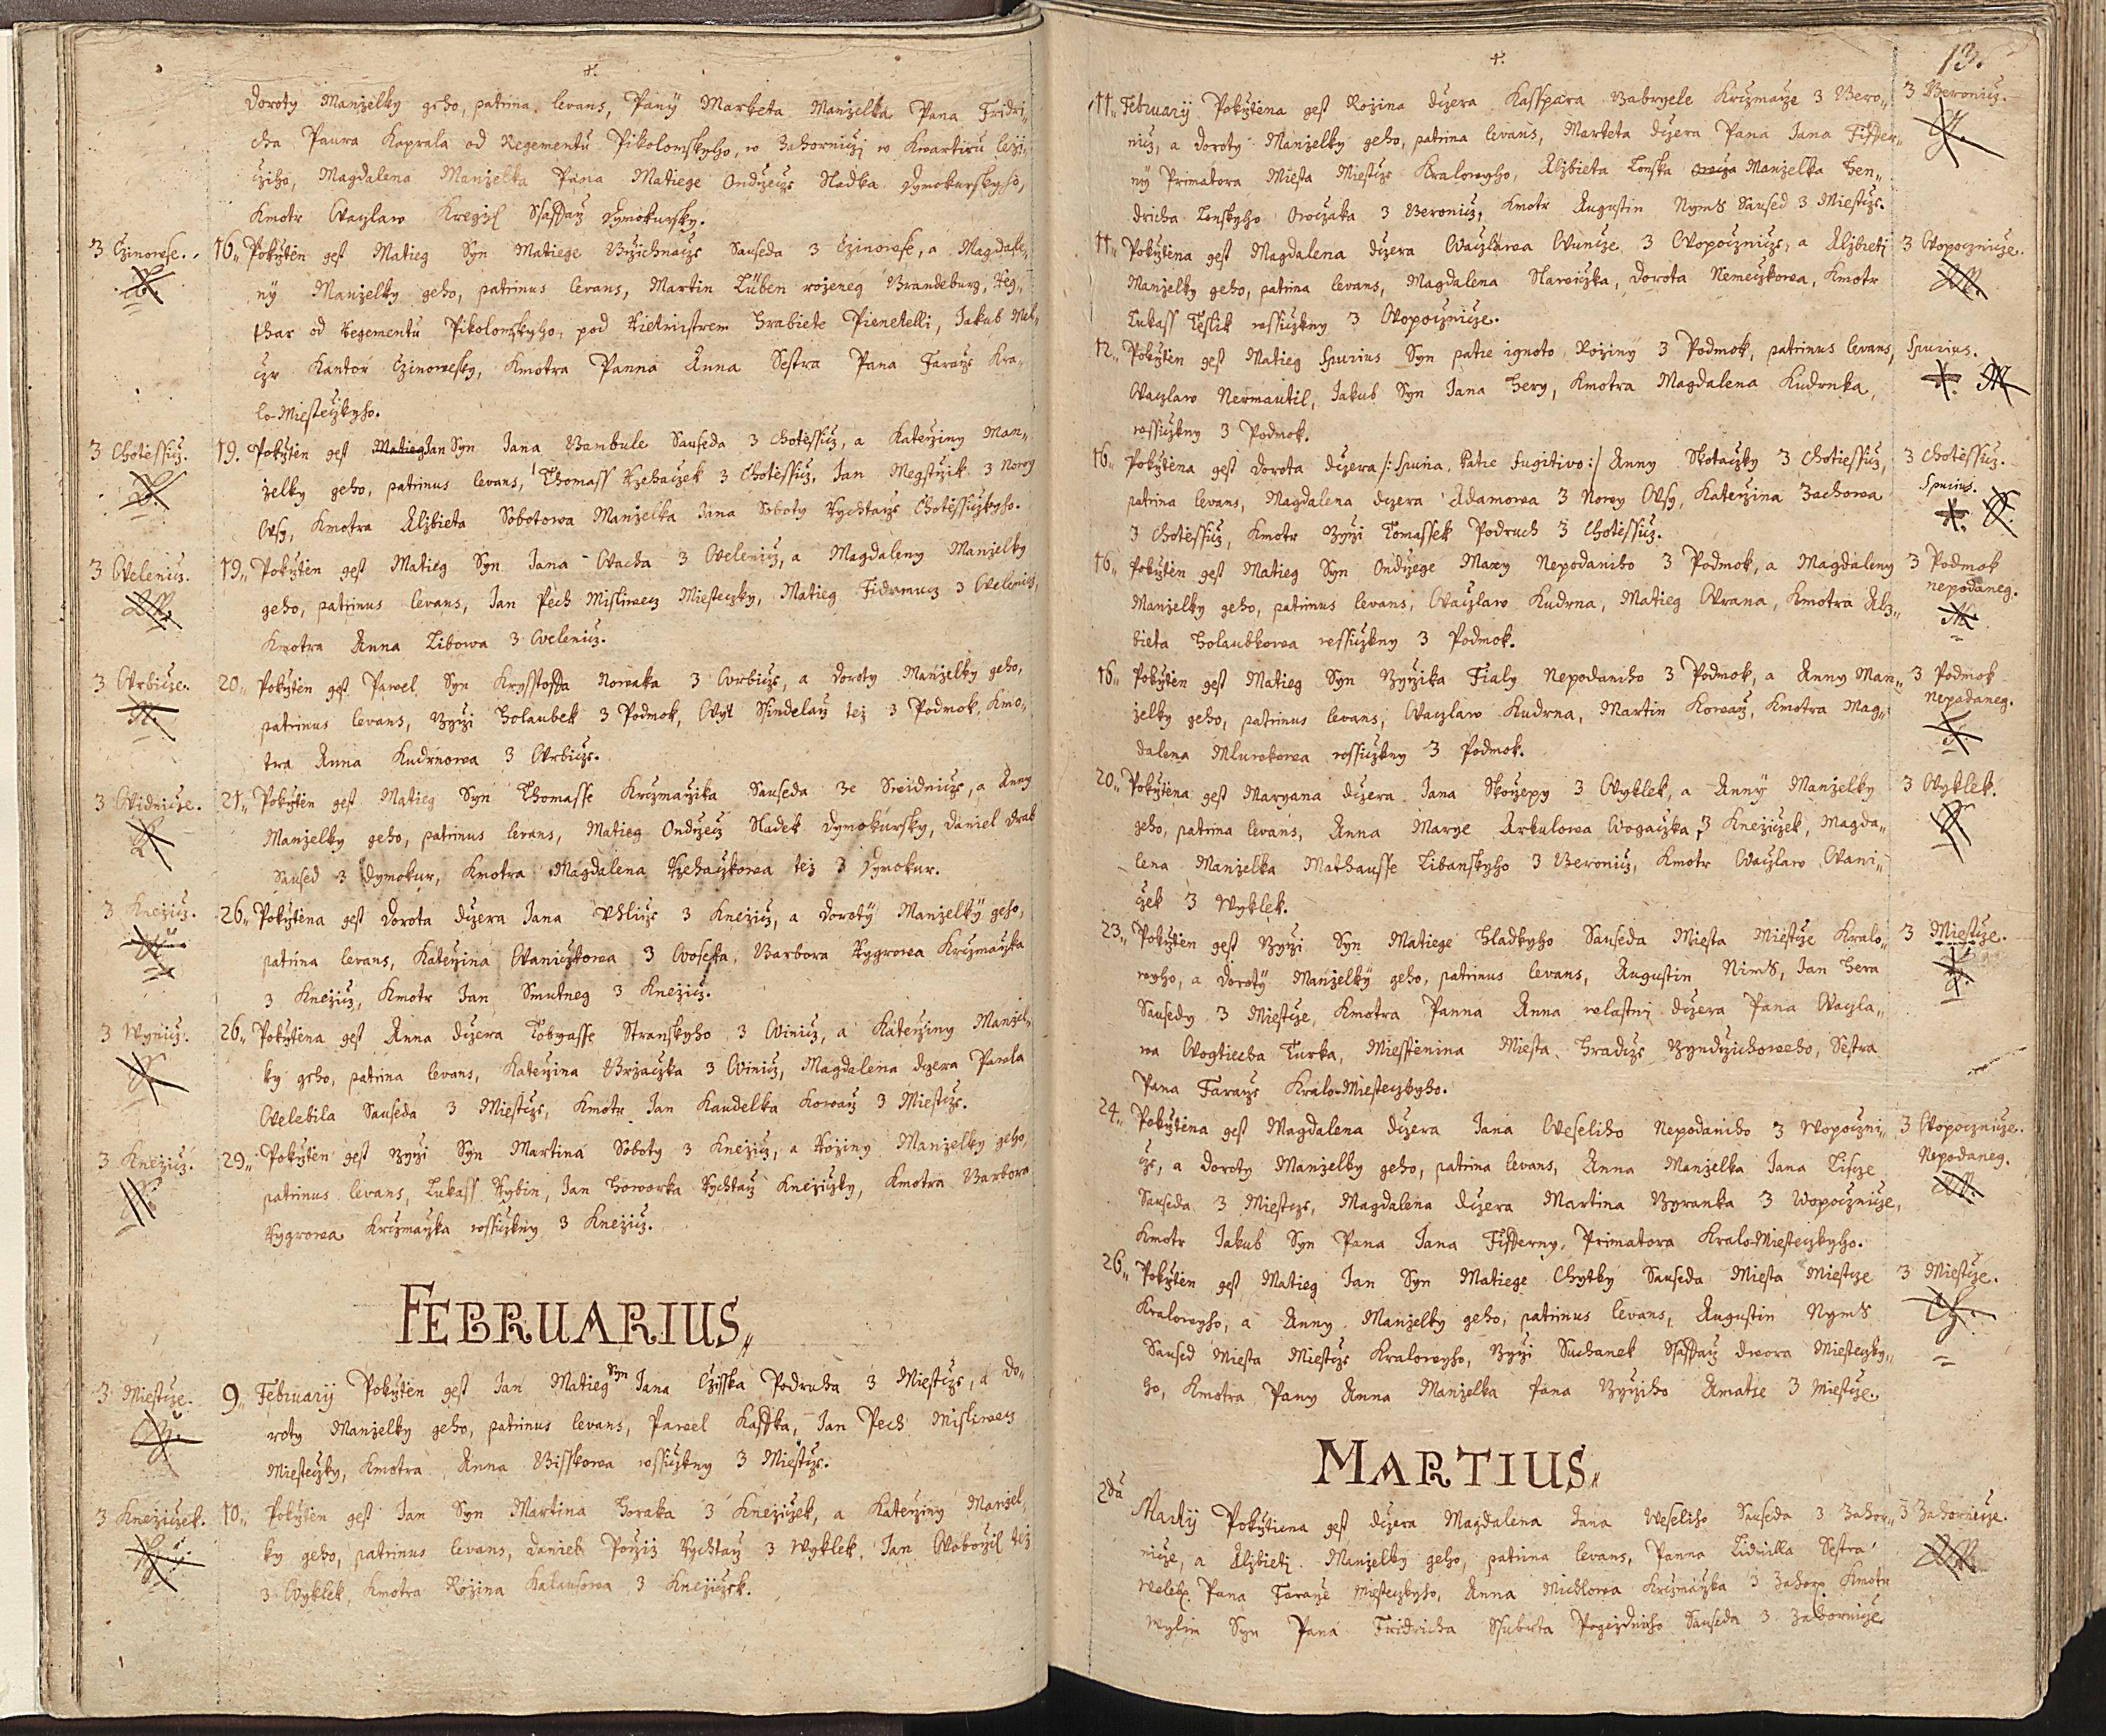 Doroty Manželky geho, patrina levans, Panÿ Marketa Manželka Pana Fridri„
cha Paura Kaprala od Regementu Pikolomskyho, w Zahorniczj w Kwartiru leži„
cziho, Magdalena Manželka Pana Matiege Ondržecze Sladka Dymokurskyho,
Kmotr Waczlaw Kregžl Ssaffarž Dymokursky.
Z Czinowese.
16„ Pokržten gest Matieg Syn Matiege Brzichnacze Sauseda z Czinowese, a Magdale„
nÿ Manželky geho, patrinus levans, Martin Lüben rozeneg Brandeburg, Reg„
thar od Regementu Pikolomskyho, pod Rietmistrem Hrabiete Pienetelli, Jakub
Kantor Czinowesky, Kmotra Panna Anna Sestra Pana Fararžе Kra„
lo-Miesteczkyho.
Z Chotessicz.
19. Pokržten gest Matieg Jan Syn Jana Bambule Sauseda z Chotessicz, a Katerziny Man„
želky geho, patrinus levans, Thomass Rzehaczek z Chotessicz, Jan Megstrzik z Nowy
Wsy, Kmotra Alžbieta Sobotowa Manželka Jana Soboty Rychtarze Chotessiczkyho.
Z Welenicz.
19„ Pokržten gest Matieg Syn Jana Wacha z Welenicz, a Magdaleny Manželky
geho, patrinus levans, Jan Pech Misliwecz Miesteczky, Matieg Fidrmucz z Welenicz,
Kmotra Anna Libowa z Welenicz.
Z Wrbicze.
20„ Pokržten gest Pawel Syn Krysstoffa Nowaka z Wrbicze, a Doroty Manželky geho,
patrinus levans, Rzyrži Holaubek z Podmok, Wyt Ssindelarž též z Podmok, Kmo„
tra Anna Kudrnowa z Wrbicze.
Z Widnicze.
21„ Pokržten gest Matieg Syn Thomasse Krczmarzika Sauseda ze Swidnicze, a Anny
Manželky geho, patrinus levans, Matieg Ondržecz Sladek Dymokursky, Daniel Drab
Saused z Dymokur, Kmotra Magdalena Rzehaczkowa též z Dymokur.
Z Knežicz.
26„ Pokržtena gest Dorota Dczera Jana Uhlirze z Knežicz, a Dorotÿ Manželkÿ geho,
patrina levans, Katerzina Waniczkowa z Woseka, Barbora Rygrowa Krczmarzka
z Knežicz, Kmotr Jan Smutneg z Knežicz.
Z Wynicz.
26„ Pokržtena gest Anna Dczera Tobyasse Stranskyho z Winicz, a Katerziny Manžel„
ky geho, patrina levans, Katerzina Brzaczka z Winicz, Magdalena Dczera Pawla
Welebila Sauseda z Miestcze, Kmotr Jan Kaudelka Kowarž z Miestcze.
Z Knežicz.
29„ Pokržten gest Rzyrži Syn Martina Soboty z Knežicz, a Rožiny Manželky geho,
patrinus levans, Lukass Rybin, Jan Howorka Rychtarž Knežiczky, Kmotra Barbora
Rygrowa Krczmarzka wssiczkny z Knežicz.
FEBRUARIUS„
Z Miestcze.
9„ Februarij Pokržten gest Jan Matieg Syn Jana Czisska Podruha z Miestcze, a Do„
roty Manželky geho, patrinus levans, Pawel Kasska, Jan Pech Misliwecz
Miesteczky, Kmotra Anna Bisskowa wssiczkny z Miestcze.
Z Knežiczek.
10„ Pokržten gest Jan Syn Martina Horaka z Knežiczek, a Katerziny Manžel„
ky geho, patrinus levans, Daniel Rychtarž z Wyklek, Jan Woboržil též
z Wyklek, Kmotra Rožina Kalausowa z Knežiczek.
13.
11„ Februarij Pokržtena gest Rožina Dczera Kasspara Babrzele Krczmarze z Bero„
nicz, a Doroty Manželky geho, patrina levans, Marketa Dczera Pana Jana Fisser„
nÿ Primatora Miesta Miestcze Kralowyho, Alžbieta Lonska Manželka Hen„
dricha Lonskyho z Beronicz, Kmotr Augustin Nymß Saused z Miestcze.
Z Beronicz.
11„ Pokržtena gest Magdalena Dczera Waczlawa Wuncze z Wopocznicze, a Alžbieti
Manželky geho, patrina levans, Magdalena Slawiczka, Dorota Nemeczkowa, Kmotr
Lukass Teslik wssiczkny z Wopocznicze.
Z Wopocznicze.
12„ Pokržten gest Matieg Spurius Syn patre ignoto Rožinÿ z Podmok, patrinus levans,
Waczlaw Nermautil, Jakub Syn Jana Hery, Kmotra Magdalena Kudrnka,
wssiczkny z Podmok.
Spurius.
16„ Pokržtena gest Dorota Dczera /: Spuria, Patre fugitivo :/ Anny Skotaczky z Chotiessicz,
patrina levans, Magdalena Dczera Adamowa z Nowy Wsy, Katerzina Zachowa
z Chotessicz, Kmotr Rzyrži Tomassek Podruch z Chotessicz.
Z Chotessicz.
Spurius.
16„ Pokržten gest Matieg Syn Ondržege Maxy Nepodaniho z Podmok, a Magdaleny
Manželky geho, patrinus levans, Waczlaw Kudrna, Matieg Wrana, Kmotra Alž„
bieta Holaubkowa wssiczkny z Podmok.
Z Podmok
nepodaneg.
16„ Pokržten gest Matieg Syn Rzyržika Fialy Nepodaniho z Podmok, a Anny Man„
želky geho, patrinus levans, Waczlaw Kudrna, Martin Kowarž, Kmotra Mag„
dalena Mlurekowa wssiczkny z Podmok.
Z Podmok
Nepodaneg.
20„ Pokržtena gest Maryana Dczera Jana Skorzepy z Wyklek, a Annÿ Manželky
geho, patrina levans, Anna Marye Arkulowa Wogaczka z Knežiczek, Magda„
lena Manželka Mathausse Libanskyho z Beronicz, Kmotr Waczlaw Wani„
czek z Wyklek.
Z Wyklek.
23„ Pokržten gest Rzyrži Syn Matiege Hladkyho Sauseda Miesta Miestcze Kralo„
wyho, a Dorotÿ Manželkÿ geho, patrinus levans, Augustin Nimß, Jan Hera
Sausedy z Miestcze, Kmotra Panna Anna wlastni Dczera Pana Waczla„
wa Wogtiecha Turka, Miesstienina Miesta Hradcze Rzyndrzichoweho, Sestra
Pana Fararžе Kralo-Miesteczkyho.
Z Miestcze.
24„ Pokržtena gest Magdalena Dczera Jana Weseliho Nepodaniho z Wopoczni„
cze, a Doroty Manželky geho, patrina levans, Anna Manželka Jana Lisse
Sauseda z Miestcze, Magdalena Dczera Martina Beranka z Wopocznicze,
Kmotr Jakub Syn Pana Jana Fisserny, Primatora Kralo-Miesteczkyho.
Z Wopocznicze.
Nepodaneg.
26„ Pokržten gest Matieg Jan Syn Matiege Chytky Sauseda Miesta Miestcze
Kralowyho, a Anny Manželky geho, patrinus levans, Augustin Nymß
Saused Miesta Miestcze Kralowyho, Rzyrži Suchanek Ssaffarž dwora Miesteczky„
ho, Kmotra Pany Anna Manželka Pana Rzyržiho Amatse z Miestcze.
Z Miestcze.
MARTIUS„
2da Martij Pokržtiena gest Dczera Magdalena Jana Weseliho Sauseda z Zahor„
nicze, a Alžbieti Manželky geho, patrina levans, Panna Lidmilla Sestra
Weleb. Pana Fararžе Miesteczkyho, Anna Michlowa Krczmarzka z Zahor. Kmotr
Wylim Syn Pana Fridricha Ssuberta Pogezdniho Sauseda z Zahornicze
Z Zahornicze.